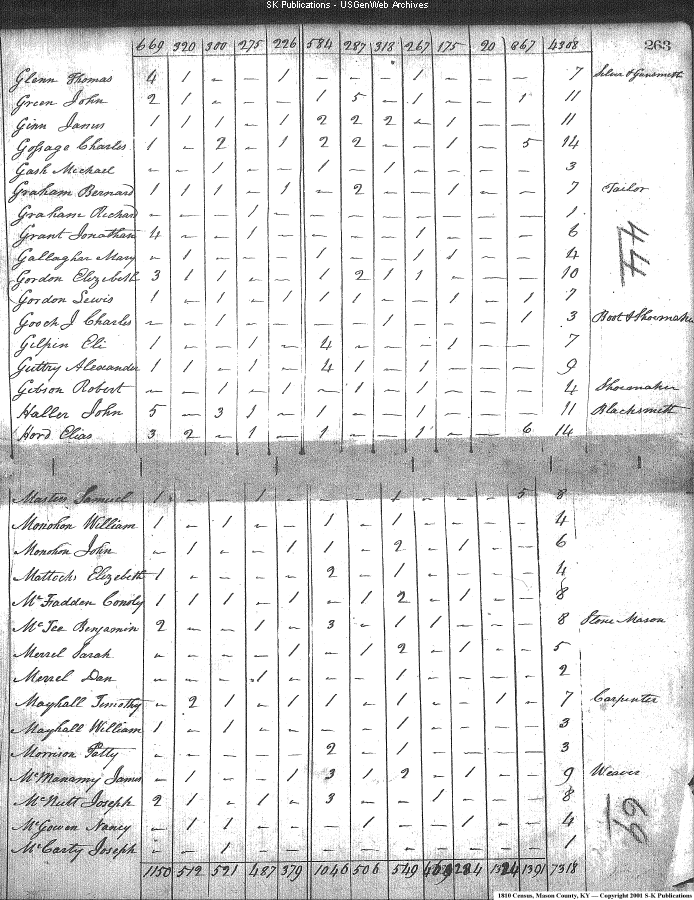 SK Publications - USGenWeb Archives
669 320 300 275 226 584 287 318 267 175 20 867 4308 263
Glenn Thomas 4 1 – – 1 – – – 1 – – – 7 Silver & Gunsmith
Green John 2 1 – – – 1 5 – 1 – – 1 11
Ginn James 1 1 1 – 1 2 2 2 – 1 – – 11
Gossage Charles 1 – 2 – 1 2 2 – – 1 – 5 14
Gash Michael – – 1 – – 1 – 1 – – – – 3
Graham Bernard 1 1 1 – 1 – 2 – – 1 – – 7 Tailor
Graham Richard – – – 1 – – – – – – – – 1
Grant Jonathan 4 – – 1 – – – – 1 – – – 6
Gallaghar Mary – 1 – – – – – – 1 1 – – 4
Gordon Elizebeth 3 1 1 – – 1 2 1 1 – – – 10
Gordon Lewis 1 – 1 – 1 1 1 – – 1 – 1 7
Gooch J Charles – – 1 – – – – 1 – – – 1 3 Boot & Shoemaker
Gilpin Eli 1 – – 1 – 4 – – – 1 – – 7
Guttry Alexander 1 1 – 1 – 4 1 – 1 – – – 9
Gibson Robert – – 1 – 1 – 1 – 1 – – – 4 Shoemaker
Haller John 5 – 3 1 – 1 – – 1 – – – 11 Blacksmith
Hord Elias 3 2 – 1 – 1 – – 1 – – 6 14
44
Masters Samuel 1 – – 1 – – – 1 – – – 5 8
Monohon William 1 – 1 – – 1 – 1 – – – – 4
Monohon John – 1 – – 1 1 – 2 – 1 – – 6
Mattocks Elizebeth 1 – – – – 2 – 1 – – – – 4
McFadden Conoly 1 1 1 – 1 – 1 2 – 1 – – 8
McTee Benjamin 2 – – 1 – 3 – 1 1 – – – 8 Stone Mason
Merrel Sarah – – – – 1 – 1 2 – 1 – – 5
Merrel Dan – – – 1 – – – 1 – – – – 2
Mayhall Timothy – 2 1 – 1 1 – 1 – – 1 – 7 Carpenter
Mayhall William 1 – 1 – – – – 1 – – – – 3
Morrison Patty – – – – – 2 – 1 – – – – 3
McManamy James – 1 – – 1 3 1 2 – 1 – – 9 Weaver
McNutt Joseph 2 1 – 1 – 3 – – 1 – – – 8
McGowen Nancy – 1 – – – – 1 – – 1 – 1 4
McCarty Joseph – – 1 – – – – – – – – – 1
69
1150 512 521 487 379 1046 506 549 1391 7318
1810 Census, Mason County, KY — Copyright 2001 S-K Publications